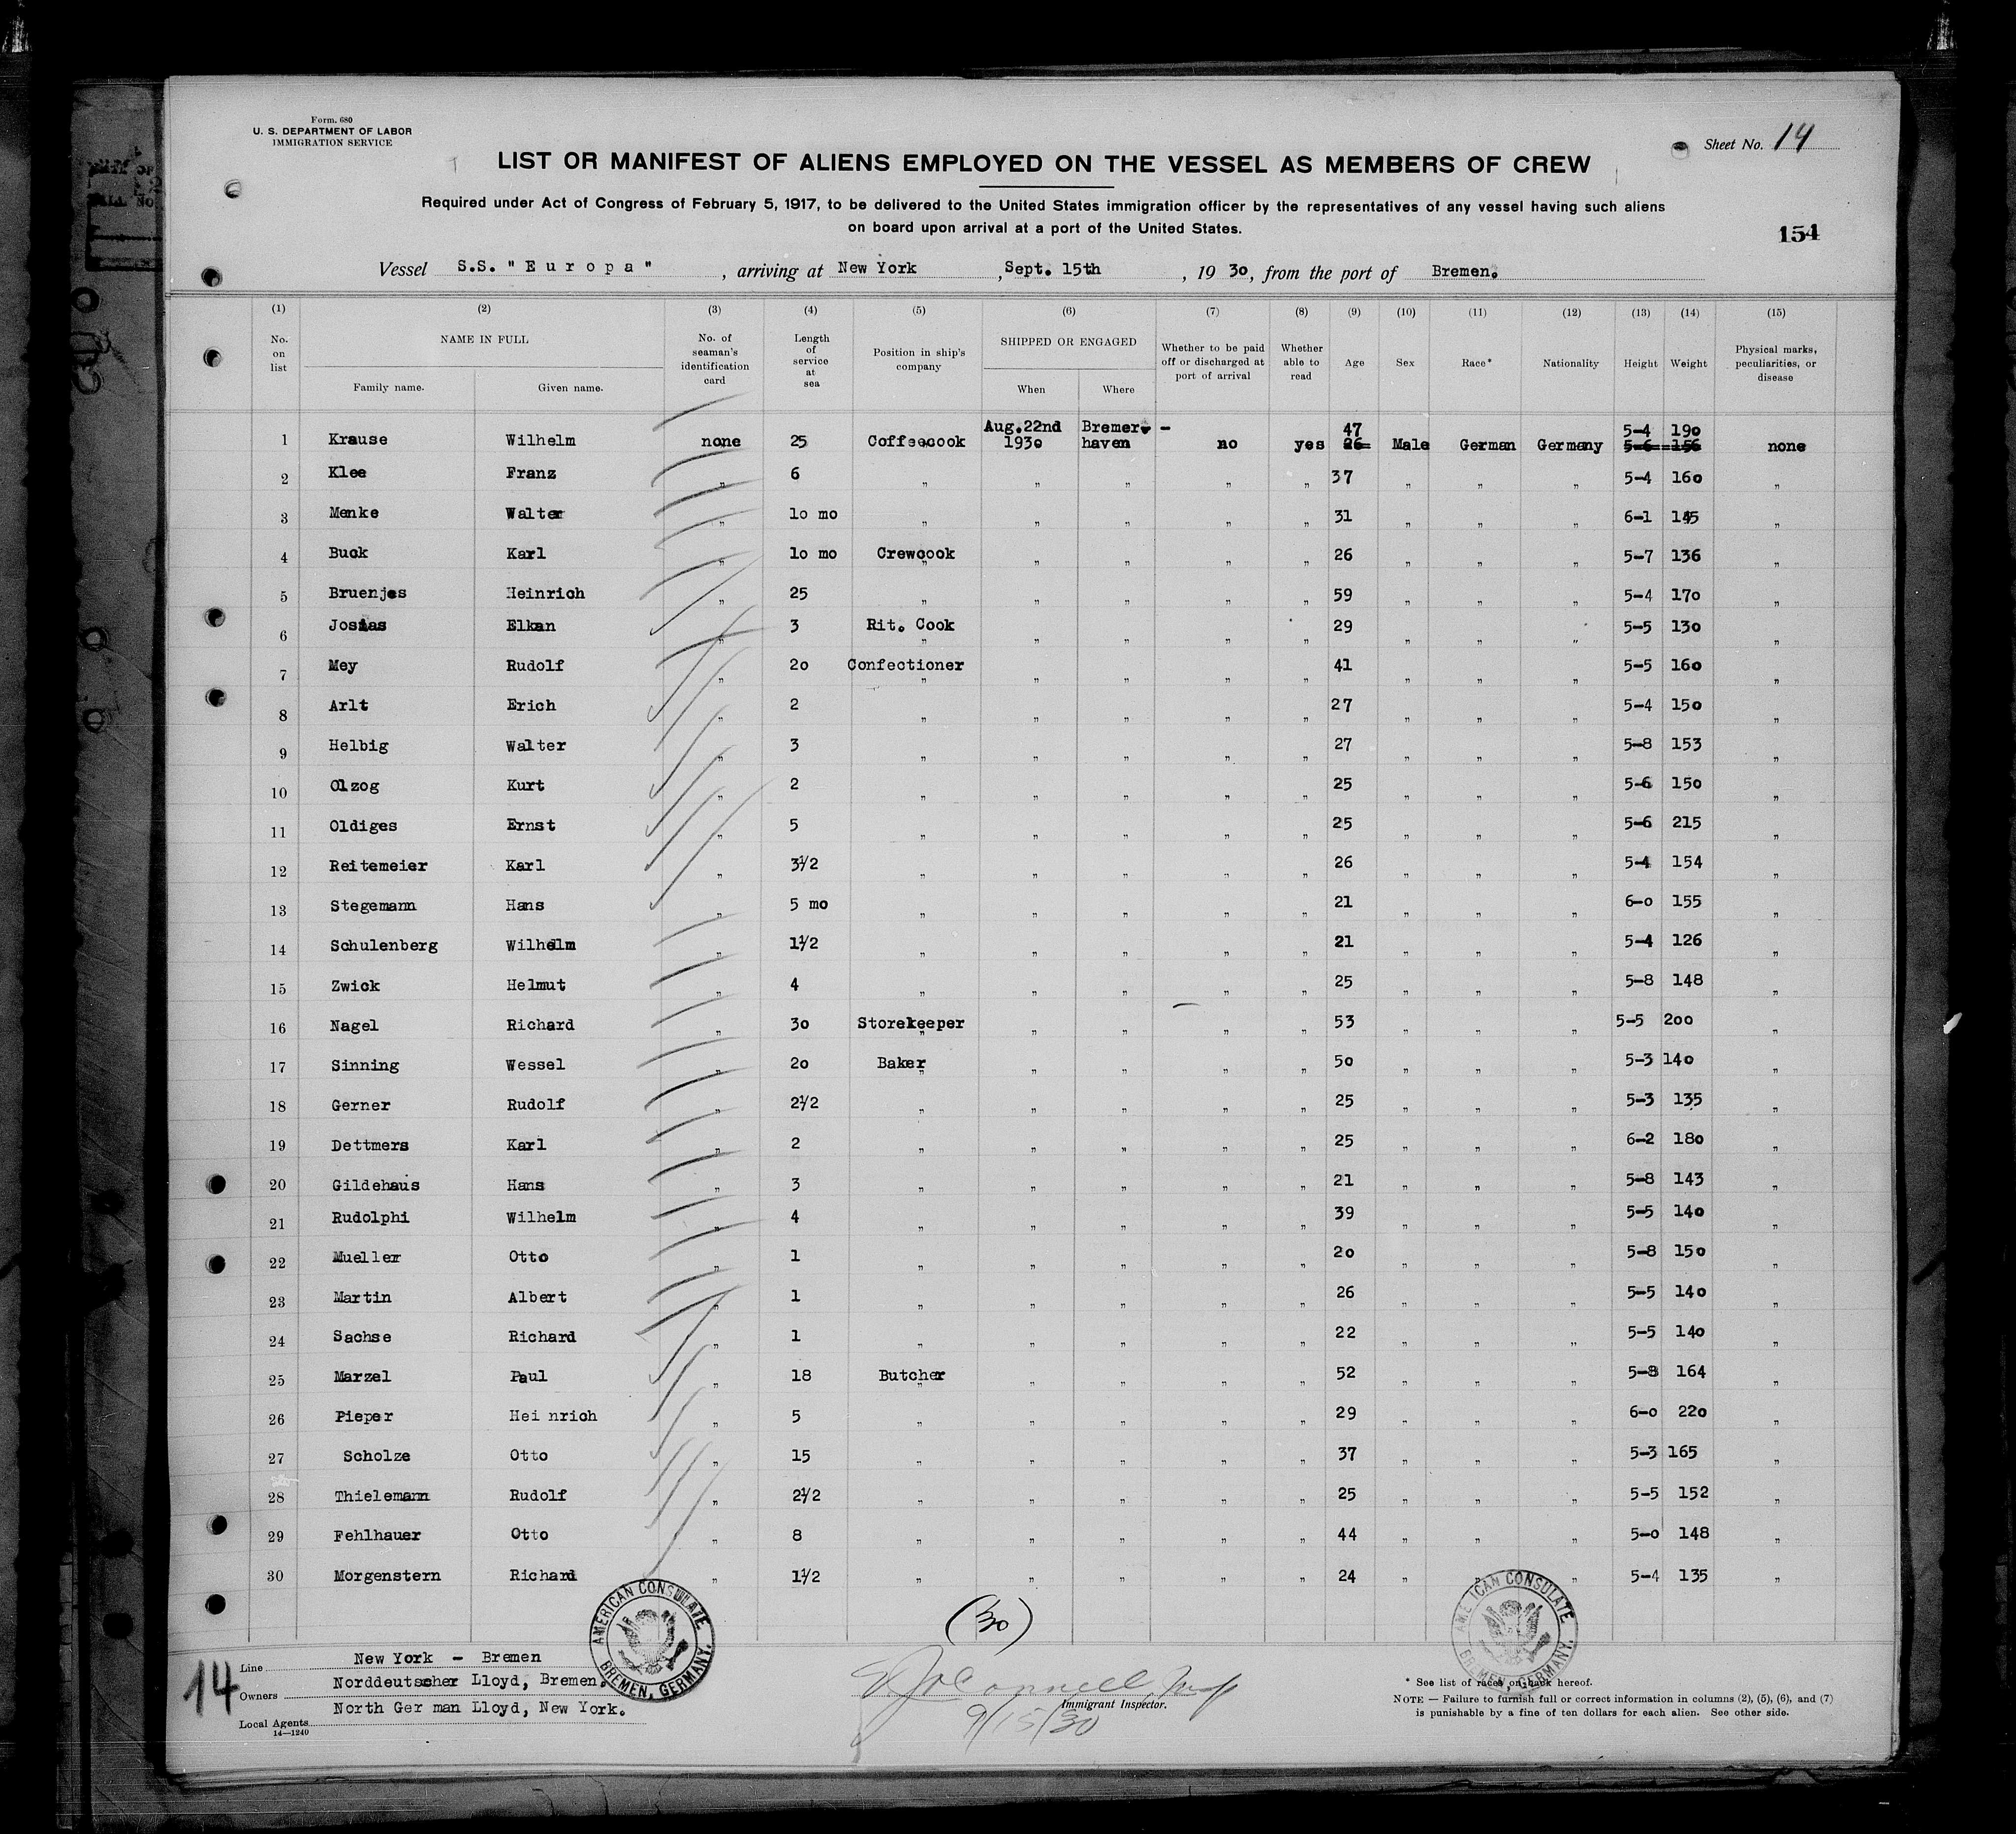 Form. 680
U. S. DEPARTMENT OF LABOR
IMMIGRATION SERVICE
Sheet No. 14
LIST OR MANIFEST OF ALIENS EMPLOYED ON THE VESSEL AS MEMBERS OF CREW
Required under Act of Congress of February 5, 1917, to be delivered to the United States immigration officer by the representatives of any vessel having such aliens
on board upon arrival at a port of the United States.
154
Vessel S.S. "Europa", arriving at New York, Sept. 15th, 1930, from the port of Bremen.
(1) (2) (3) (4) (5) (6) (7) (8) (9) (10) (11) (12) (13) (14) (15)
No. on list NAME IN FULL Family name. Given name. No. of seaman's identification card Length of service at sea Position in ship's company SHIPPED OR ENGAGED When Where Whether to be paid off or discharged at port of arrival Whether able to read Age Sex Race* Nationality Height Weight Physical marks, peculiarities, or disease
1 Krause Wilhelm none 25 Coffeecook Aug.22nd 1930 Bremer-haven no yes 47 26 Male German Germany 5-4 190 5-6 156 none
2 Klee Franz " 6 " " " " " 37 " " " 5-4 160 "
3 Menke Walter " 10 mo " " " " " 31 " " " 6-1 145 "
4 Buck Karl " 10 mo Crewcook " " " " 26 " " " 5-7 136 "
5 Bruenjes Heinrich " 25 " " " " " 59 " " " 5-4 170 "
6 Josias Elkan " 3 Rit. Cook " " " " 29 " " " 5-5 130 "
7 Mey Rudolf " 20 Confectioner " " " " 41 " " " 5-5 160 "
8 Arlt Erich " 2 " " " " " 27 " " " 5-4 150 "
9 Helbig Walter " 3 " " " " " 27 " " " 5-8 153 "
10 Olzog Kurt " 2 " " " " " 25 " " " 5-6 150 "
11 Oldiges Ernst " 5 " " " " " 25 " " " 5-6 215 "
12 Reitemeier Karl " 3½ " " " " " 26 " " " 5-4 154 "
13 Stegemann Hans " 5 mo " " " " " 21 " " " 6-0 155 "
14 Schulenberg Wilhelm " 1½ " " " " " 21 " " " 5-4 126 "
15 Zwick Helmut " 4 " " " " " 25 " " " 5-8 148 "
16 Nagel Richard " 30 Storekeeper " " " " 53 " " " 5-5 200 "
17 Sinning Wessel " 20 Baker " " " " 50 " " " 5-3 140 "
18 Gerner Rudolf " 2½ " " " " " 25 " " " 5-3 135 "
19 Dettmers Karl " 2 " " " " " 25 " " " 6-2 180 "
20 Gildehaus Hans " 3 " " " " " 21 " " " 5-8 143 "
21 Rudolphi Wilhelm " 4 " " " " " 39 " " " 5-5 140 "
22 Mueller Otto " 1 " " " " " 20 " " " 5-8 150 "
23 Martin Albert " 1 " " " " " 26 " " " 5-5 140 "
24 Sachse Richard " 1 " " " " " 22 " " " 5-5 140 "
25 Marzel Paul " 18 Butcher " " " " 52 " " " 5-8 164 "
26 Pieper Heinrich " 5 " " " " " 29 " " " 6-0 220 "
27 Scholze Otto " 15 " " " " " 37 " " " 5-3 165 "
28 Thielemann Rudolf " 2½ " " " " " 25 " " " 5-5 152 "
29 Fehlhauer Otto " 8 " " " " " 44 " " " 5-0 148 "
30 Morgenstern Richard " 1½ " " " " " 24 " " " 5-4 135 "
(30)
AMERICAN CONSULATE BREMEN, GERMANY.
AMERICAN CONSULATE BREMEN, GERMANY.
14
Line New York - Bremen
Owners Norddeutscher Lloyd, Bremen.
Local Agents North German Lloyd, New York.
14—1240
Immigrant Inspector.
9/15/30
* See list of races on back hereof.
NOTE — Failure to furnish full or correct information in columns (2), (5), (6), and (7)
is punishable by a fine of ten dollars for each alien. See other side.